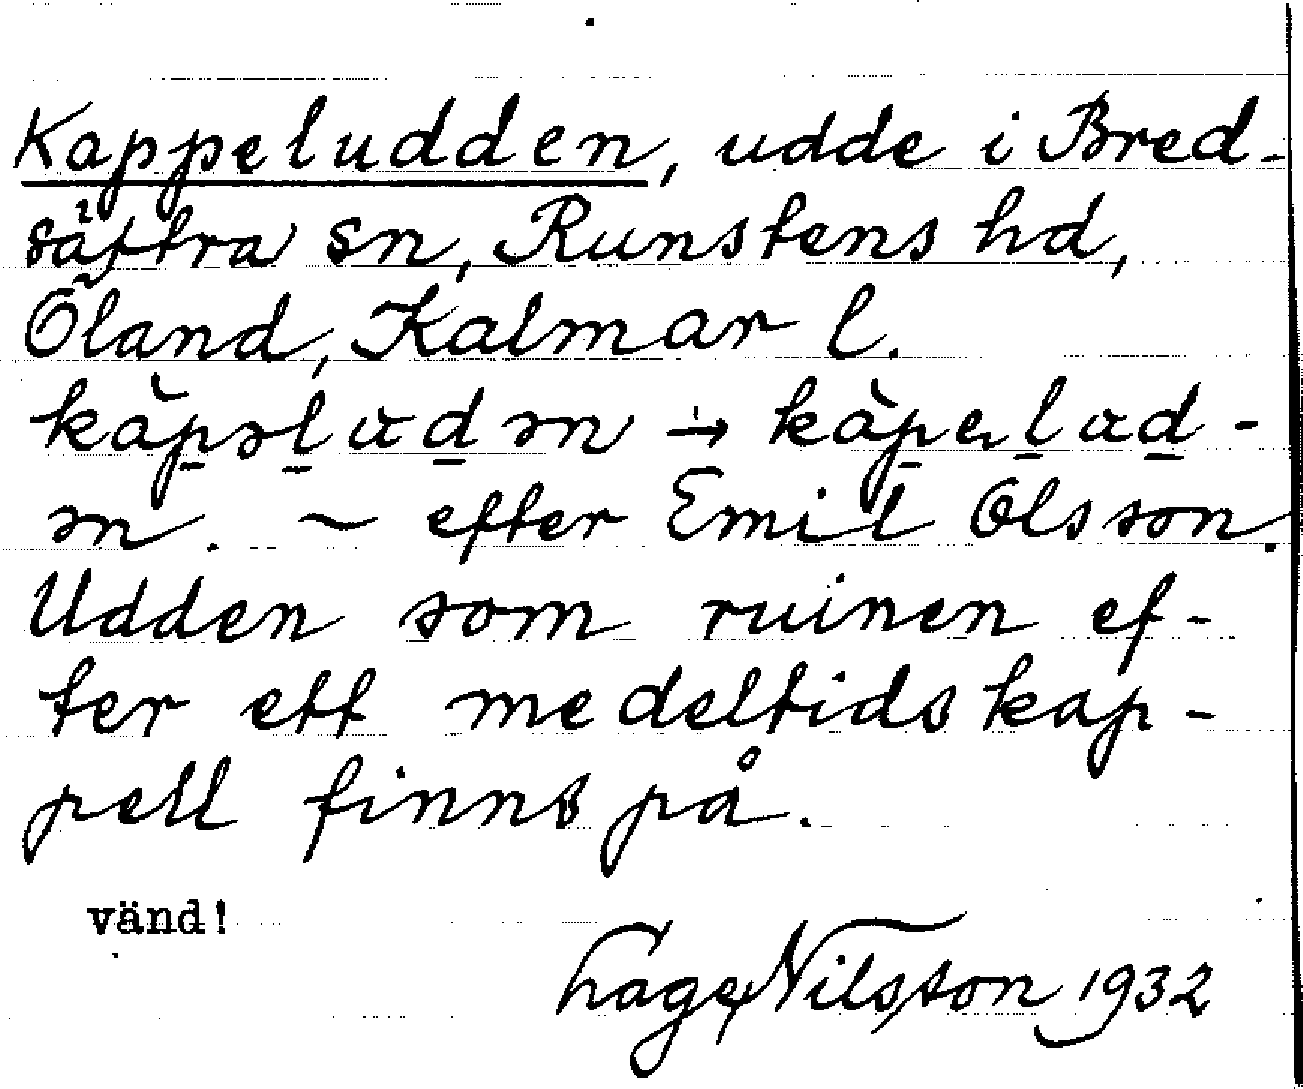 Kappeludden, udde i Bred-
sättra sn, Runstens hd,
Öland, Kalmar l.
kàpəludən → kàpelud-
ən. ~ efter Emil Olsson.
Udden som ruinen ef-
ter ett medeltidskap-
pell finns på.
vänd!
Hage Nilsson 1932